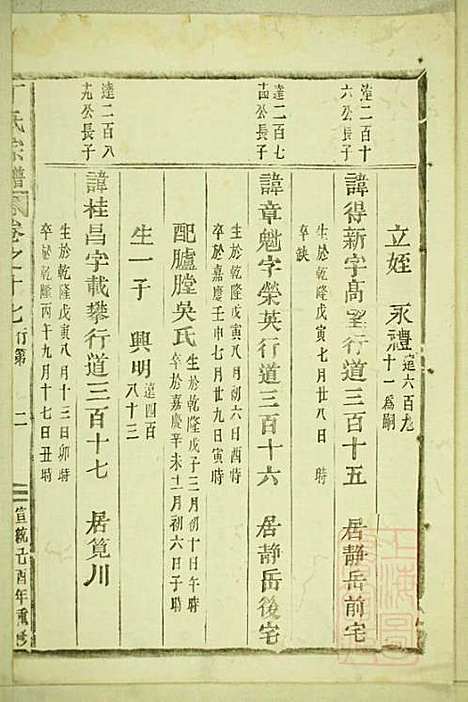 立姪 永禮 道六百九十一爲嗣
達二百十六公長子
諱得新字高望行道三百十五 居靜岳前宅
生於乾隆戊寅七月廿八日
卒缺
達二百七十四公長子
諱章魁字榮英行道三百十六 居靜岳後宅
生於乾隆戊寅八月初六日酉時
卒於嘉慶壬申七月廿九日寅時
配臚膛吳氏 生於乾隆戊子三月初十日午時
卒於嘉慶辛未二月初六日子時
生一子 興明 道四百八十三
達二百八十九公長子
諱桂昌字載攀行道三百十七 居筧川
生於乾隆戊寅八月十三日卯時
卒於乾隆丙午九月十七日丑時
丁氏宗譜 卷之十七 行第 二 宣統己酉年重修
上海圖